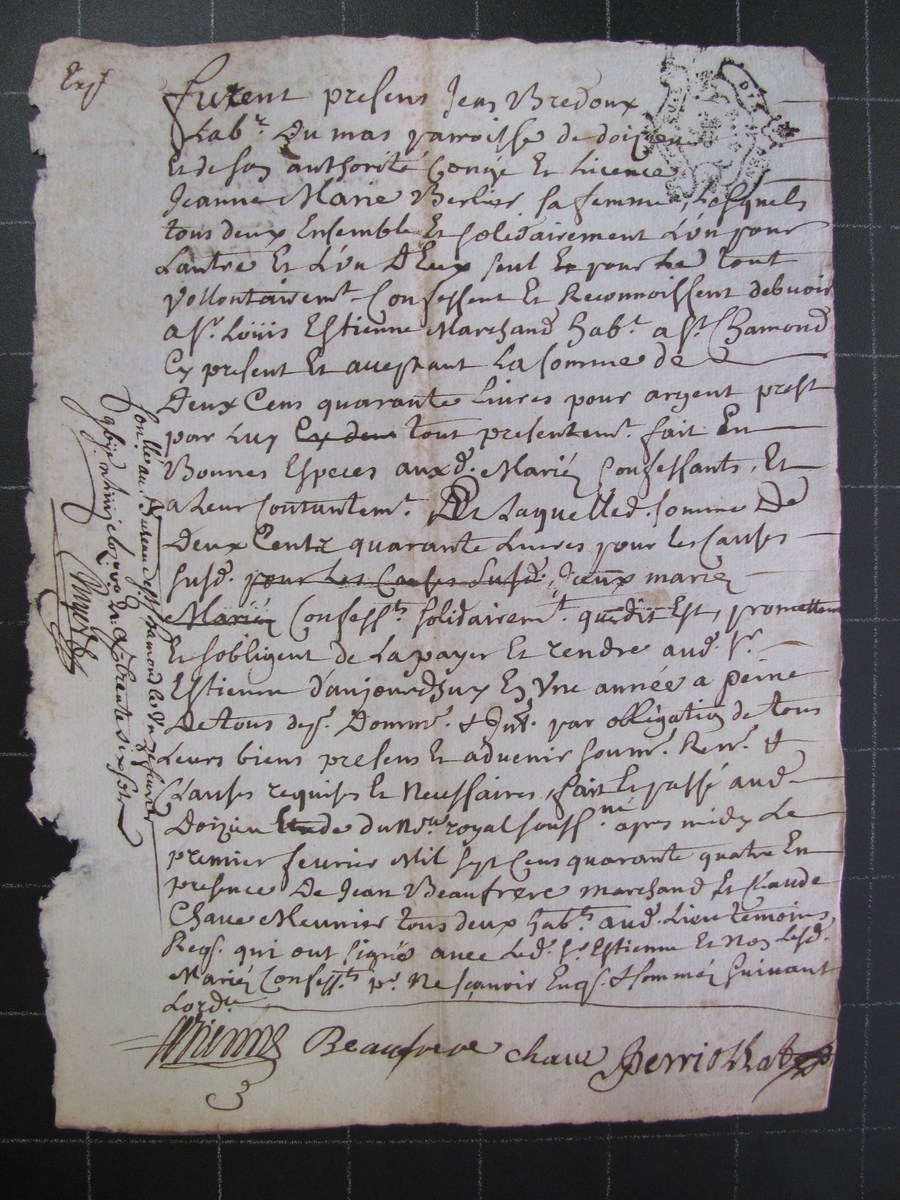 Exp.t
furent presens Jean Bredoux
Lab.r Du mas parroisse de doizieu
Et de son authorité Congé Et Licence
Jeanne Marie Berlier sa femme, Lesquels
tous deux Ensemble Et solidairement L'un pour
Lautre Et L'un D'Eux seul Et pour Le tout
Vollontairem.t Confessent Et Reconnoissent debvoir
a S.r Loüis Estienne Marchand hab.t a S.t Chamond
Cy present Et acceptant La somme de
Deux Cens quarante Livres pour argent prest
par Luy Ex deux tout presentem.t fait En
Bonnes Especes auxd. Mariéz Confessants, Et
a Leur Contantem.t Et Laquelled. somme De
Deux Centz quarante Livres pour les Causes
susd. pour Les Causes susd., Iceux mariez
Mariéz Confess.ts solidairem.t que dit Est, promettent
Et sobligent de La payer Et rendre aud. S.r
Estienne d'aujourdhuy En Une année a peine
De tous des. Domm. & Int. par obligation de tous
Leurs biens presens Et advenir soum. Ren. &
Clauses requises Et Necessaires, fait Et passé aud.
Doizieu Etude du No.re royal souss.né apres midy Le
premier fevrier Mil sept Cens quarante quatre En
presence De Jean Beaufrere marchand Et Claude
Chave Meunier tous deux hab.ts aud. Lieu temoins
Reqs. qui ont signés avec Led. S.r Estienne Et Non Lesd.
Mariéz Confess.ts p.r Ne sçavoir Enqs. & sommés suivant
Lord.ce
Estienne Beaufrere chave Perriohat
Con.llé au Bureau de S.t Chamond le
trente six sols